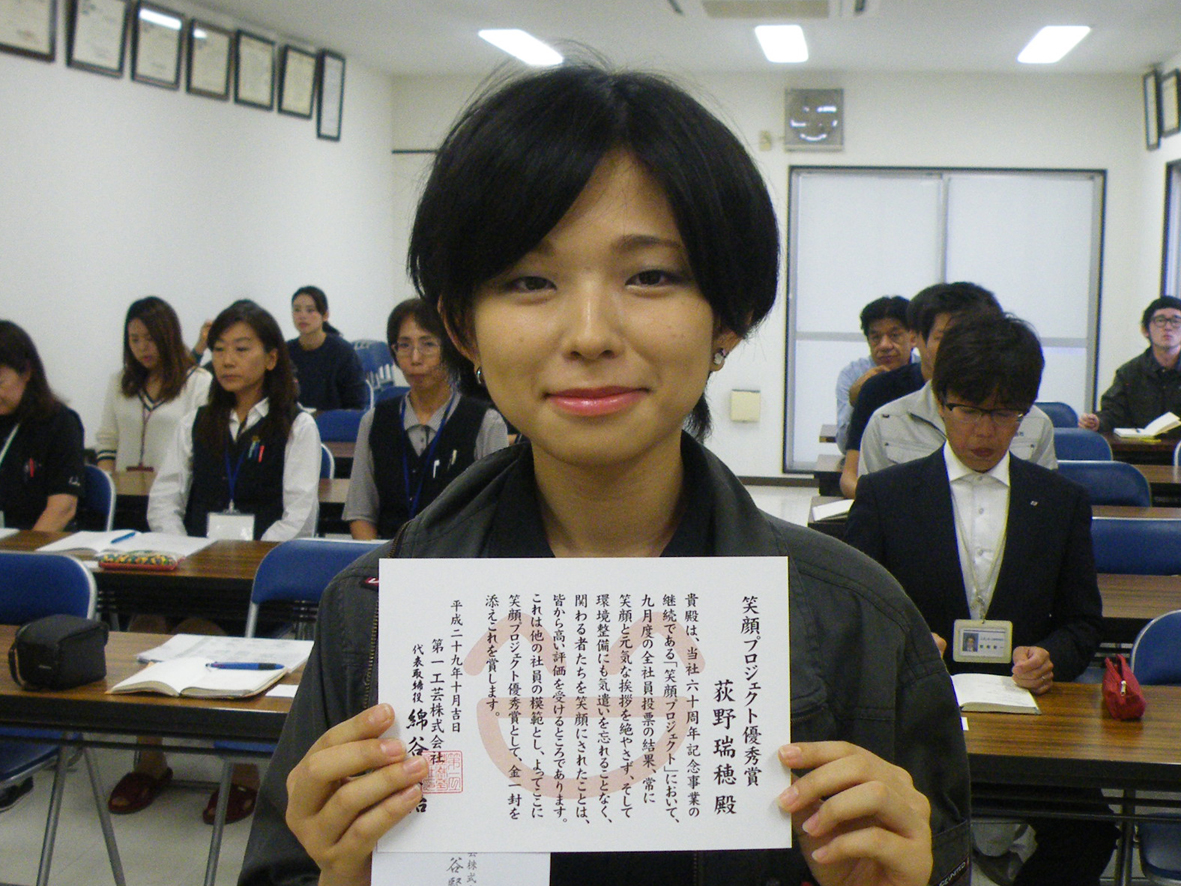 笑顔プロジェクト優秀賞
荻野瑞穂 殿
貴殿は、当社六十周年記念事業の
継続である「笑顔プロジェクト」において、
九月度の全社員投票の結果、常に
笑顔と元気な挨拶を絶やさず、そして
環境整備にも気遣いを忘れることなく、
関わる者たちを笑顔にされたことは、
皆から高い評価を受けるところであります。
これは他の社員の模範とし、よってここに
笑顔プロジェクト優秀賞として、金一封を
添えこれを賞します。
平成二十九年十月吉日
第一工芸株式会社
代表取締役 綿谷
芸株式
谷堅